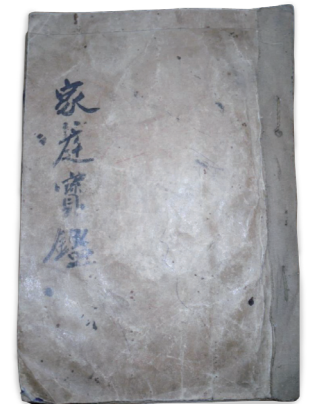 家庭寶鑑